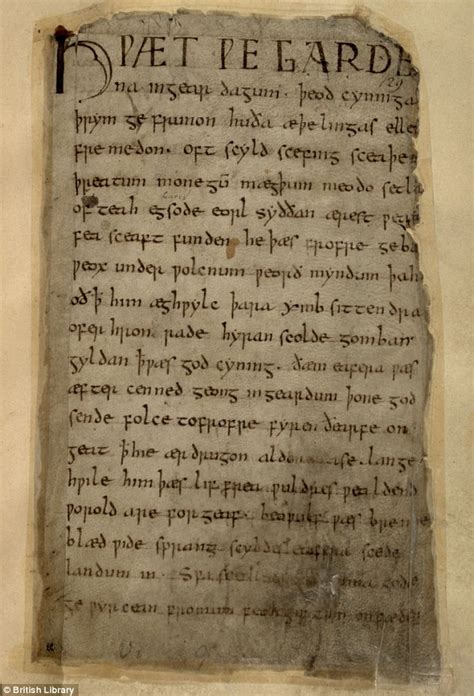 HǷÆT ǷE GARDE
na ingear dagum. þeod cyninga
þrym ge frunon huða æþelingas elle
fremedon. oft scyld scefing sceaþe
þreatum monegū mægþum meodo setla
of teah egsode eorl syððan ærest ƿear
fea sceaft funden he þæs frofre geba
ƿeox under ƿolcnum ƿeorð myndum þah
oð ꝥ him æghƿylc þara ymb sittendra
ofer hron rade hyran scolde gomban
gyldan ꝥ ƿæs god cyning. ðæm eafera ƿæs
æfter cenned geong ingeardum þone god
sende folce tofrofre fyren ðearfe on
geat ꝥ hie ær drugon aldor ase. lange
hƿile him þæs lif frea ƿuldres ƿealdend
ƿorold are forgeaf. beoƿulf ƿæs breme
blæd ƿide sprang scyldes eafera scede
landum in. Sƿa sceal guma gode
ge ƿyrcean fromum feoh giftum
© British Library